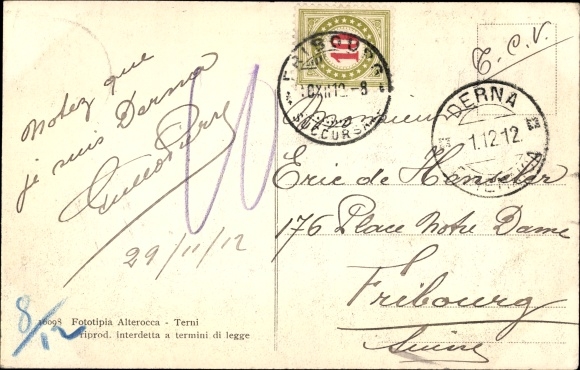 Notez que
je suis Derna
29/11/12
8/12
16098 Fototipia Alterocca - Terni
riprod. interdetta a termini di legge
10
FRIBOURG
10XII12-8
SUCCURSALE
T.C.V.
DERNA
1.12.12
Monsieur
Eric de Hanseler
176 Place Notre Dame
Fribourg
Suisse